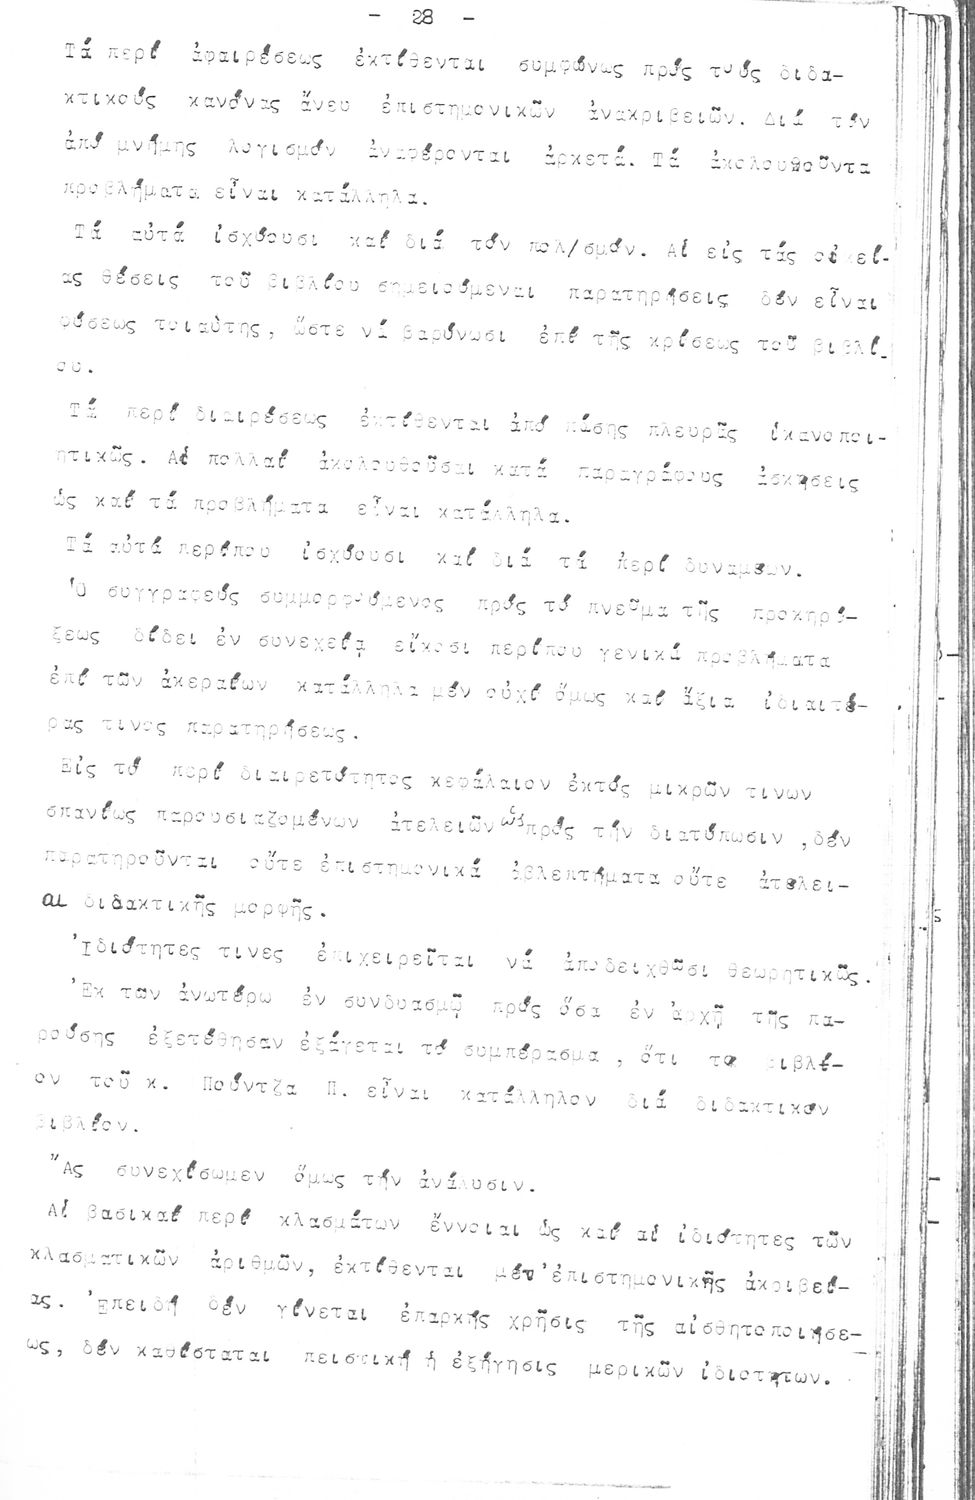 - 28 -
Τά περί ἀφαιρέσεως ἐκτίθενται συμφώνως πρός τούς διδα-
κτικούς κανόνας ἄνευ ἐπιστημονικῶν ἀνακριβειῶν. Διά τόν
ἀπό μνήμης λογισμόν ἀναφέρονται ἀρκετά. Τά ἀκολουθοῦντα
προβλήματα εἶναι κατάλληλα.
Τά αὐτά ἰσχύουσι καί διά τόν πολ/σμόν. Αἱ εἰς τάς οἰκεί-
ας θέσεις τοῦ βιβλίου σημειούμεναι παρατηρήσεις δέν εἶναι
φύσεως τοιαύτης, ὥστε νά βαρύνωσι ἐπί τῆς κρίσεως τοῦ βιβλί-
ου.
Τά περί διαιρέσεως ἐκτίθενται ἀπό πάσης πλευρᾶς ἱκανοποι-
ητικῶς. Αἱ πολλαί ἀκολουθοῦσαι κατά παραγράφους ἀσκήσεις
ὡς καί τά προβλήματα εἶναι κατάλληλα.
Τά αὐτά περίπου ἰσχύουσι καί διά τά περί δυνάμεων.
Ὁ συγγραφεύς συμμορφούμενος πρός τό πνεῦμα τῆς προκηρύ-
ξεως δίδει ἐν συνεχείᾳ εἴκοσι περίπου γενικά προβλήματα
ἐπί τῶν ἀκεραίων κατάλληλα μέν οὐχί ὅμως καί ἄξια ἰδιαιτέ-
ρας τινος παρατηρήσεως.
Εἰς τό περί διαιρετότητος κεφάλαιον ἐκτός μικρῶν τινων
σπανίως παρουσιαζομένων ἀτελειῶν ὡς πρός τήν διατύπωσιν ,δέν
παρατηροῦνται οὔτε ἐπιστημονικά ἀβλεπτήματα οὔτε ἀτέλει-
αι διδακτικῆς μορφῆς.
Ἰδιότητες τινες ἐπιχειρεῖται νά ἀποδειχθῶσι θεωρητικῶς.
Ἐκ των ἀνωτέρω ἐν συνδυασμῷ πρός ὅσα ἐν ἀρχῇ τῆς πα-
ρούσης ἐξετέθησαν ἐξάγεται τό συμπέρασμα , ὅτι το βιβλί-
ον τοῦ κ. Πούντζα Π. εἶναι κατάλληλον διά διδακτικόν
βιβλίον.
Ἄς συνεχίσωμεν ὅμως τήν ἀνάλυσιν.
Αἱ βασικαί περί κλασμάτων ἔννοιαι ὡς καί αἱ ἰδιότητες τῶν
κλασματικῶν ἀριθμῶν, ἐκτίθενται μέτ'ἐπιστημονικῆς ἀκριβεί-
ας. Ἐπειδή δέν γίνεται ἐπαρκής χρῆσις τῆς αἰσθητοποιήσε-
ως, δέν καθίσταται πειστική ἡ ἐξήγησις μερικῶν ἰδιοτήτων.